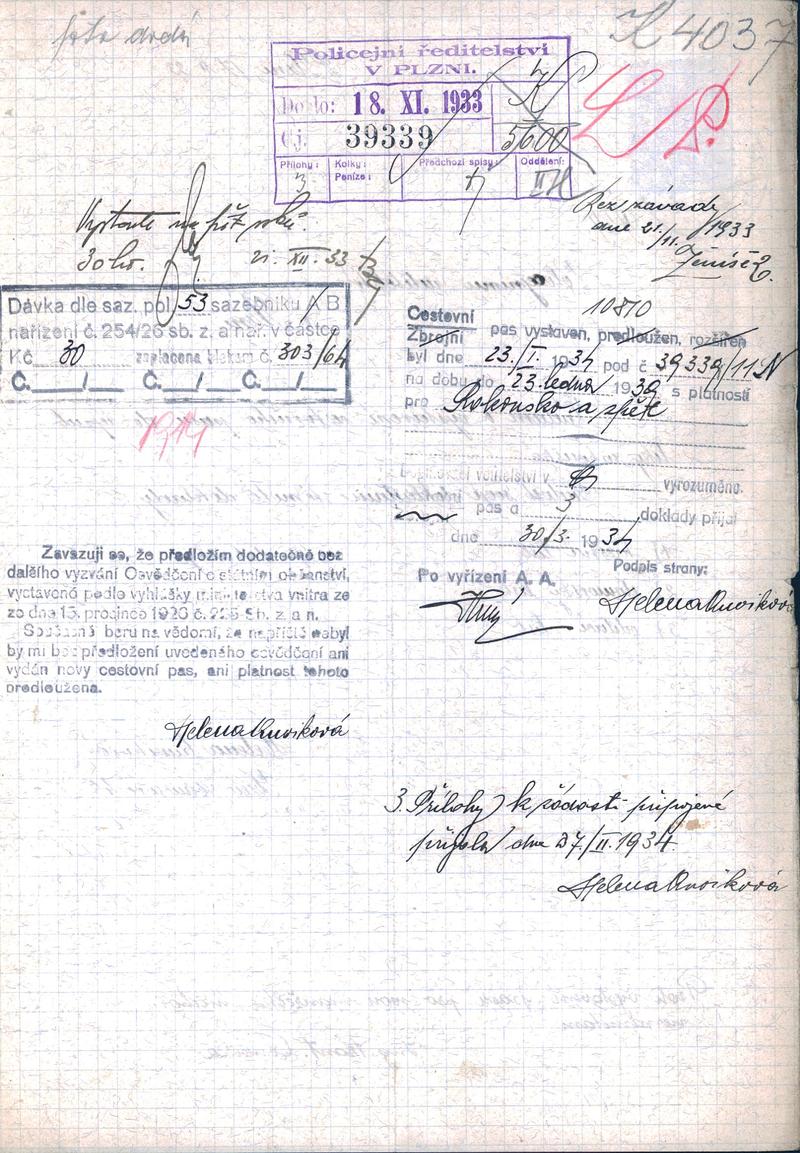 foto dodá
K 4037
Policejní ředitelství
V PLZNI.
Došlo: 18. XI. 1933
Čj. 39339
5600
Přílohy: 3
Kolky:
Peníze:
Předchozí spisy:
Oddělení: II
Bez závady
dne 21./11. 1933
Vystavte na pět roků.
30 Kč. 21. XII. 33
Dávka dle saz. pol. 53 sazebníku A B
nařízení č. 254/26 sb. z. a nař. v částce
Kč 30 zaplacena blokem č. 303/64
Č. / Č. / Č. /
10810
Cestovní
Zbrojní pas vystaven, prodloužen, rozšířen
byl dne 23./I. 1934 pod č 39339/11N
na dobu do 23. ledna 1939 s platností
pro Rakousko a zpět
velitelství v vyrozuměno.
pas a 3 doklady přijal
dne 30/3. 1934
Po vyřízení A. A.
Podpis strany:
Zavazuji se, že předložím dodatečně bez
dalšího vyzvání Osvědčení o státním občanství,
vystavené podle vyhlášky ministerstva vnitra ze
ze dne 15. prosince 1926 č. 225 Sb. z. a n.
Současně beru na vědomí, že napříště nebyl
by mi bez předložení uvedeného osvědčení ani
vydán nový cestovní pas, ani platnost tohoto
prodloužena.
Helena
Helena
3. Přílohy k žádosti připojené
přijala dne 27/II. 1934.
Helena